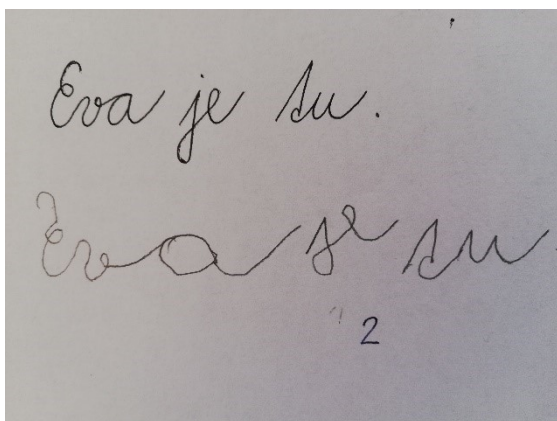 Eva je su.
Eva se su.
2